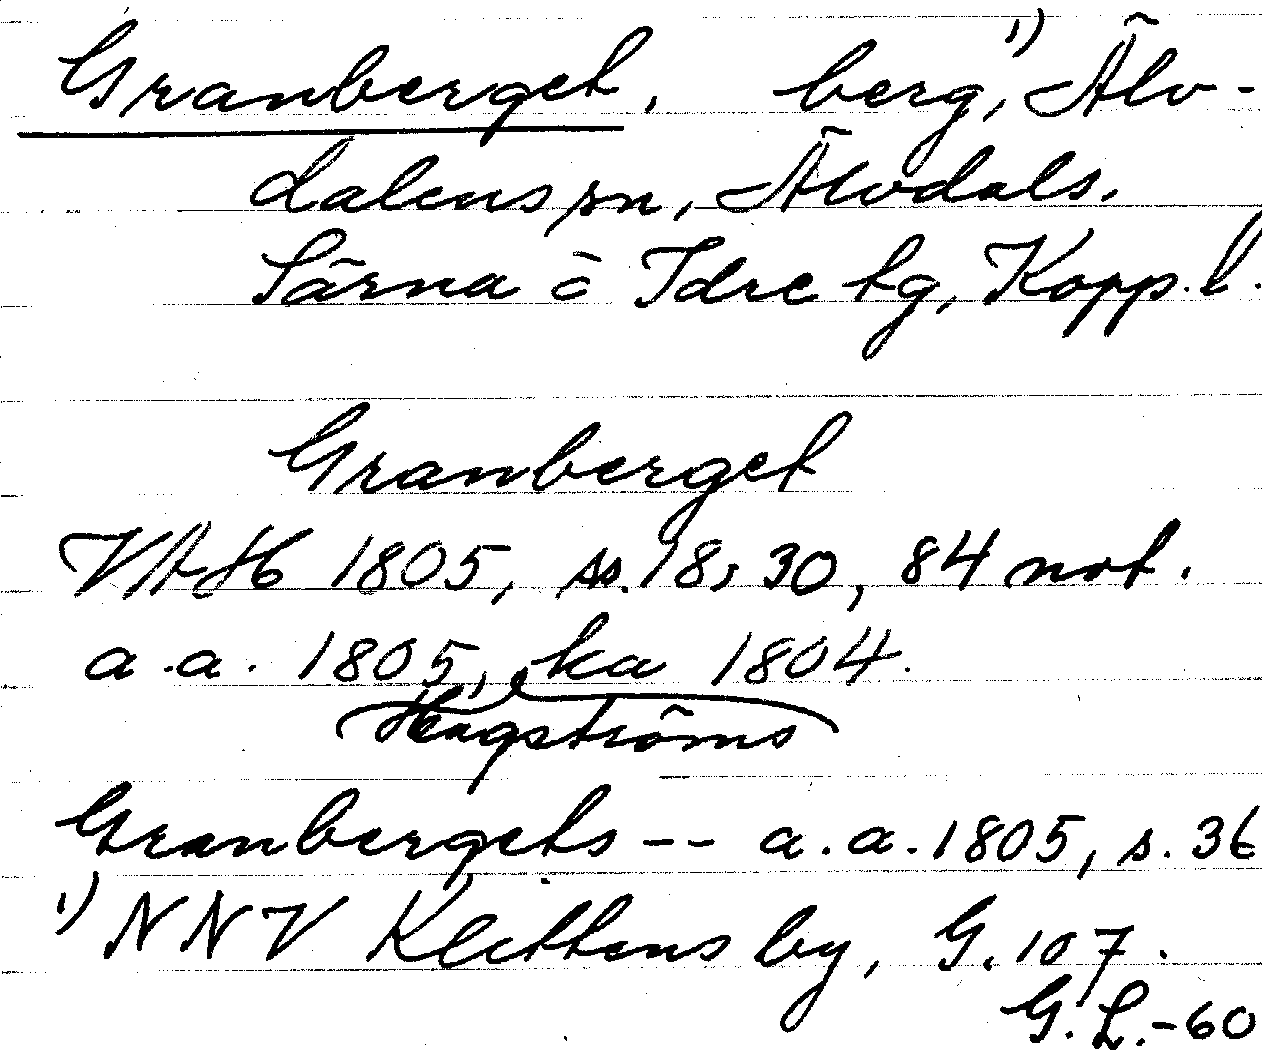 Granberget, berg,¹) Älv-
dalens sn, Älvdals.
Särna o Idre tg, Kopp. l.
Granberget
VAH 1805, ss. 18, 30, 84 not.
a.a. 1805, ka 1804.
Hagströms
Granbergets -- a.a. 1805, s. 36
¹) NNV Klittens by, G. 107.
G. L. -60